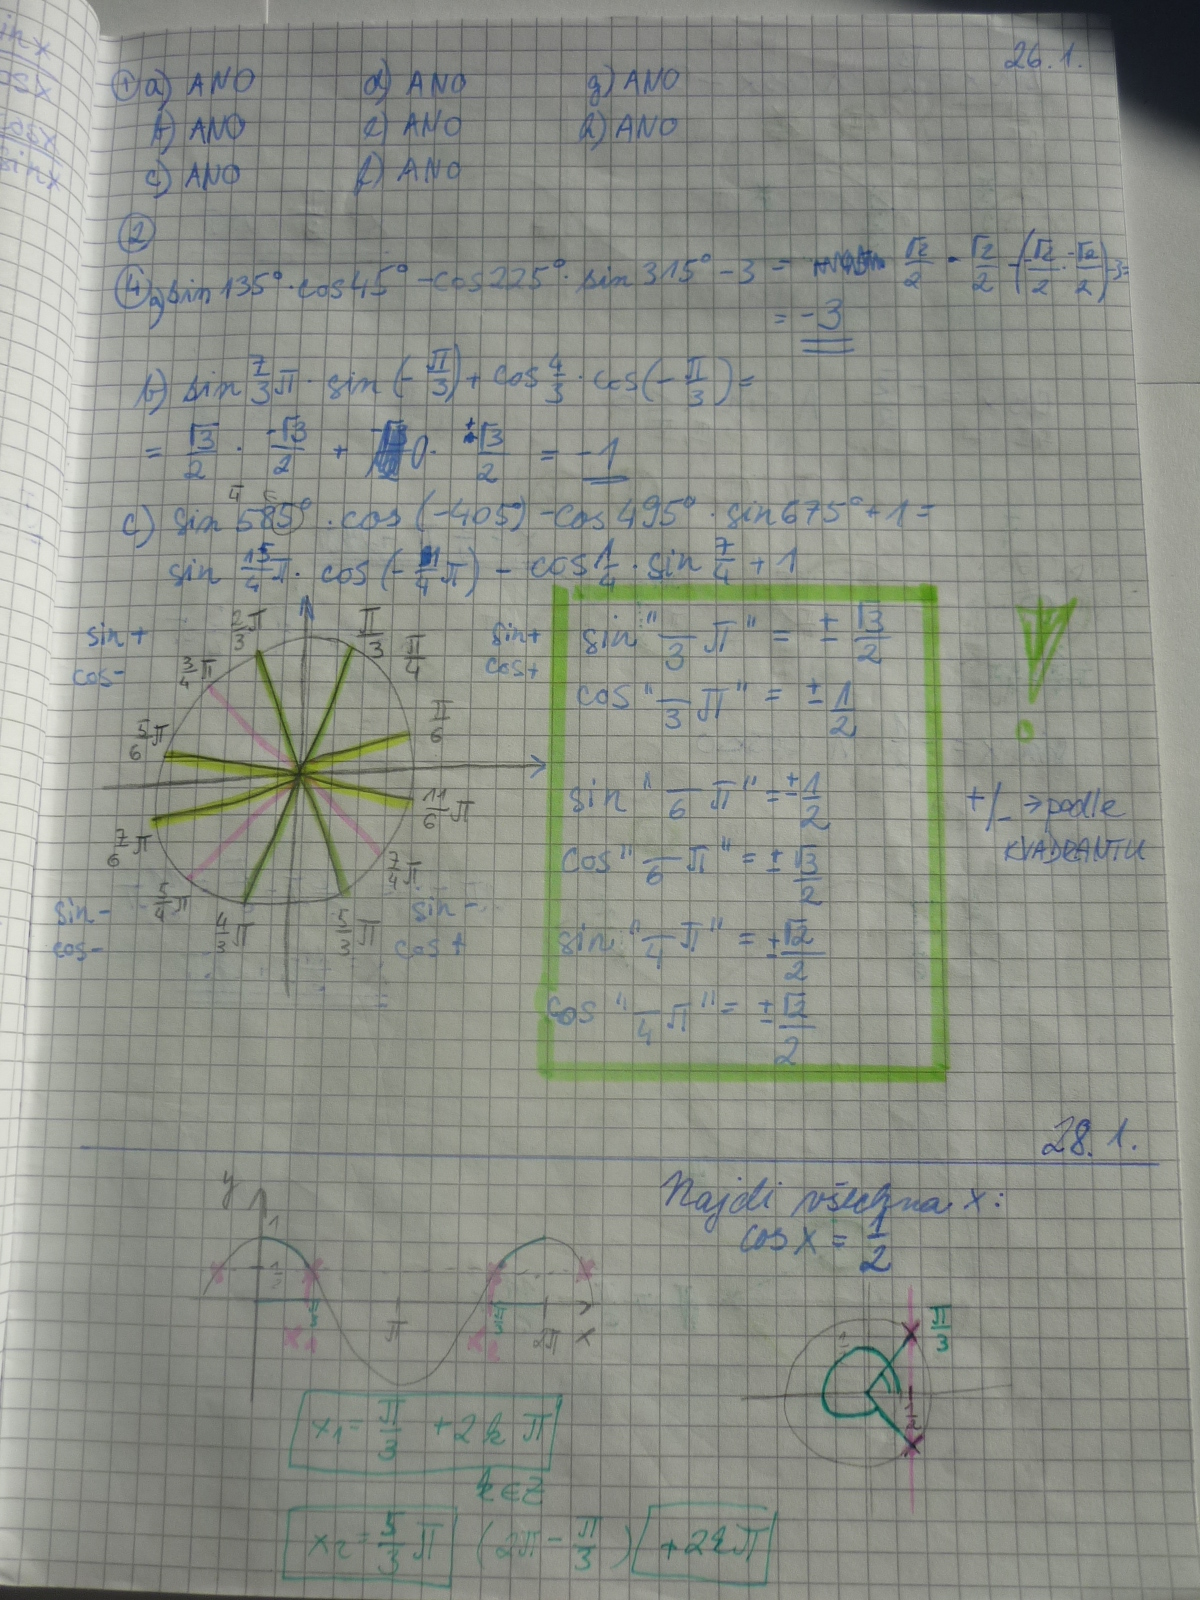 26.1.
① a) ANO d) ANO g) ANO
b) ANO e) ANO h) ANO
c) ANO f) ANO
②
④ a) sin 135° · cos 45° - cos 225° · sin 315° - 3 = √2/2 · √2/2 - (-√2/2 · -√2/2) - 3 =
= -3
b) sin 7/3 π · sin (-π/3) + cos 4/3 · cos (-π/3) =
= √3/2 · -√3/2 + 0 · ±√3/2 = -1
c) sin 585° · cos (-405°) - cos 495° · sin 675° + 1 =
sin 15/4 π · cos (- 11/4 π) - cos 1/4 · sin 7/4 + 1
sin +
cos -
sin+
cos+
2/3 π
π/3
3/4 π
π/4
5/6 π
π/6
7/6 π
11/6 π
5/4 π
7/4 π
4/3 π
5/3 π
sin -
cos -
sin -
cos +
sin "—/3 π" = ± √3/2
cos "—/3 π" = ± 1/2
sin "—/6 π" = ± 1/2
cos "—/6 π" = ± √3/2
sin "—/4 π" = ± √2/2
cos "—/4 π" = ± √2/2
!
+/- → podle
KVADRANTU
28.1.
Najdi všechna x:
cos x = 1/2
y
1
1/2
π
2π
x
π/3
1/2
x₁ = π/3 + 2kπ
k∈Z
x₂ = 5/3 π (2π - π/3) + 2kπ